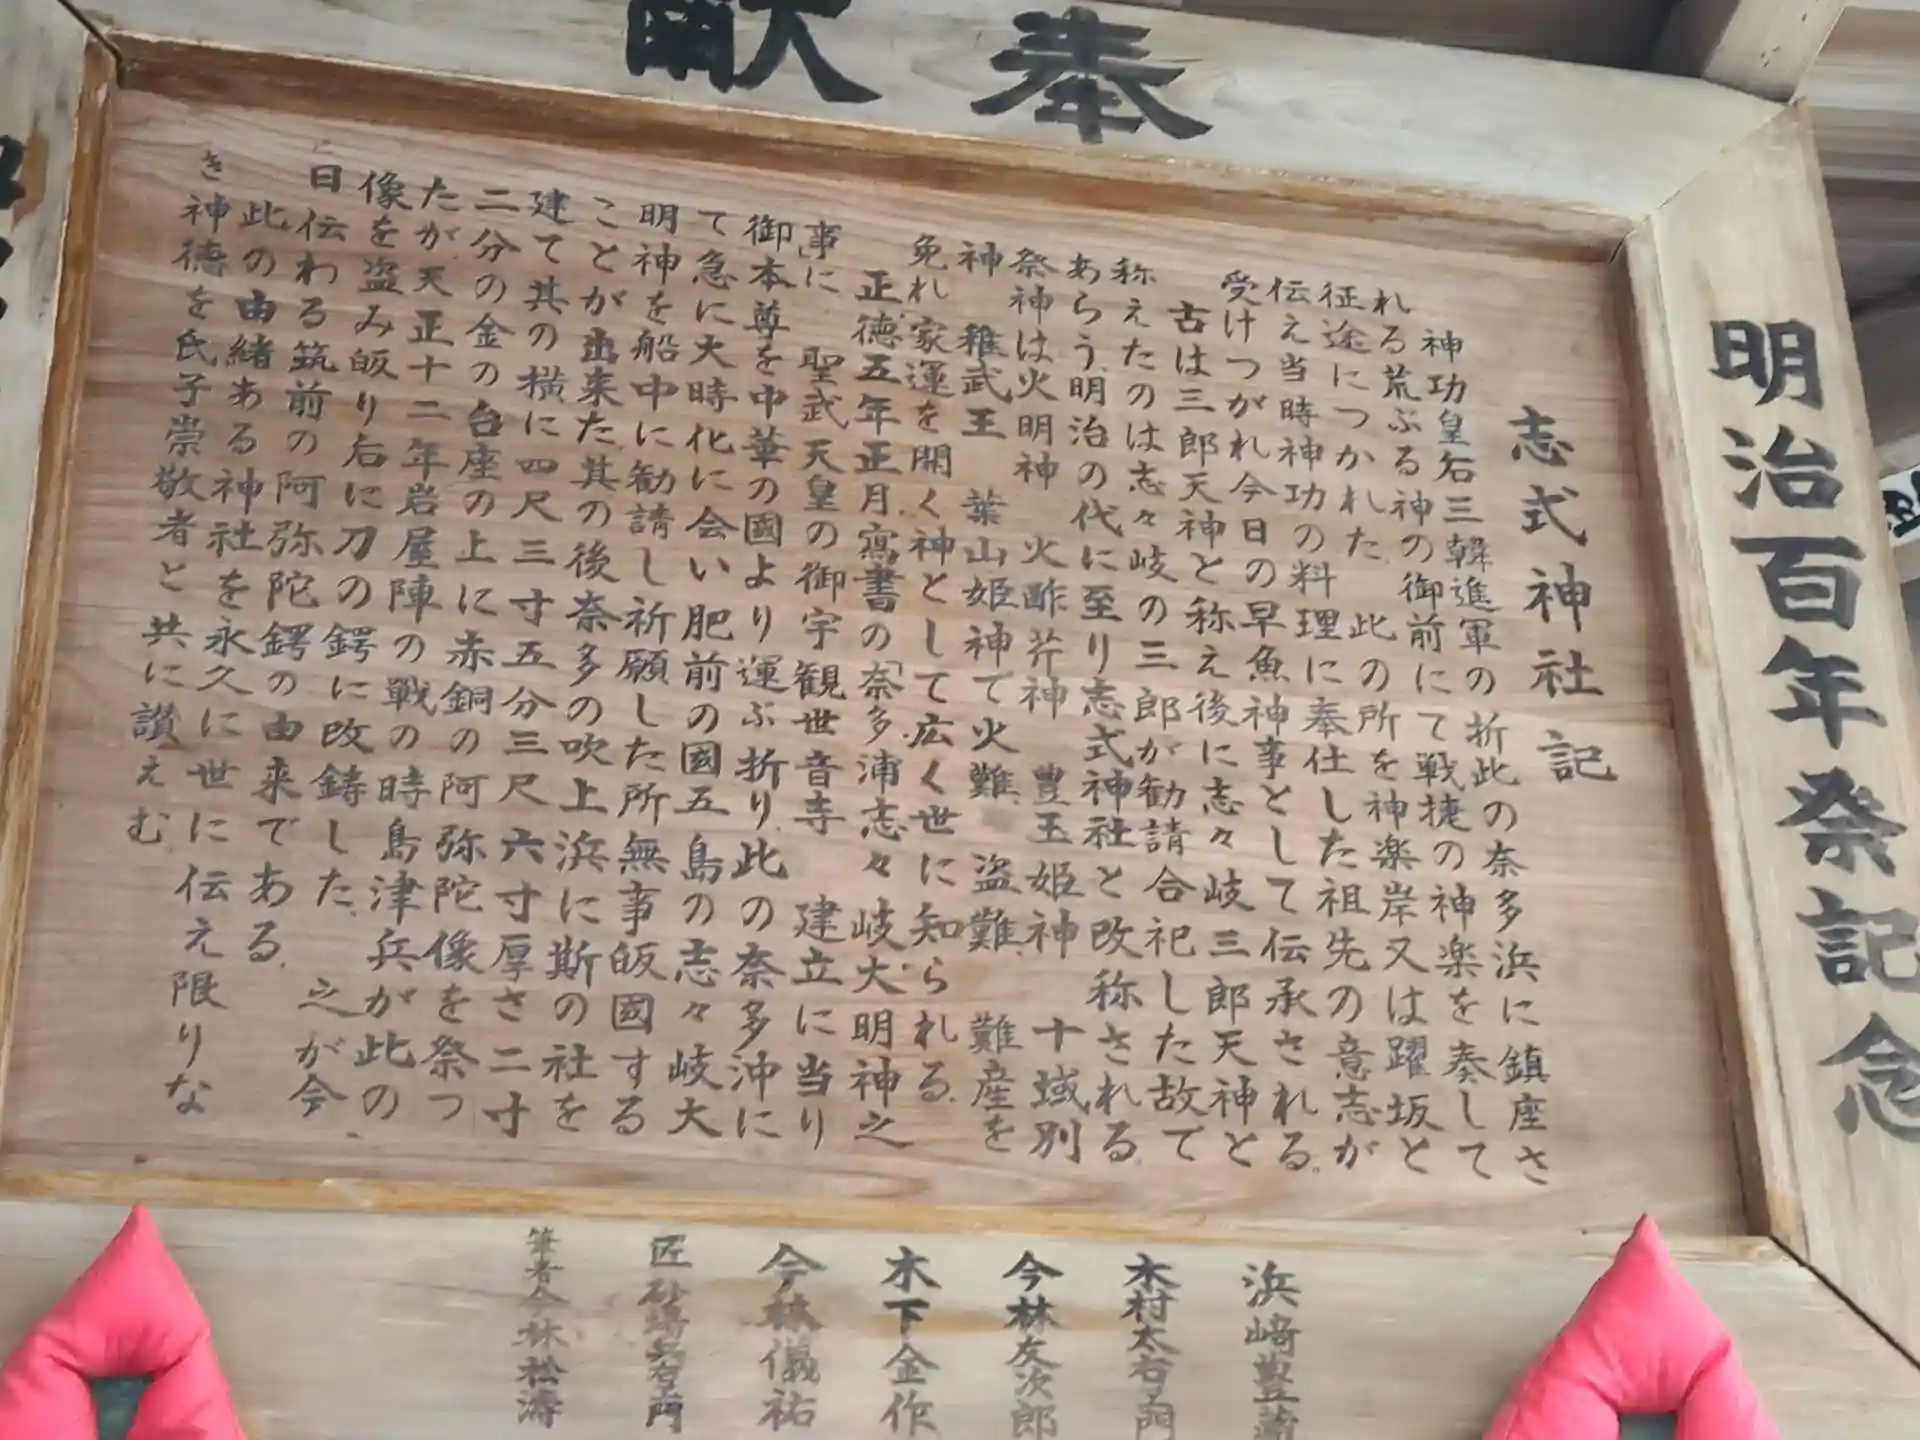 奉献
明治百年祭記念
志式神社記
神功皇后三韓進軍の折此の奈多浜に鎮座さ
れる荒ぶる神の御前にて戦捷の神楽を奏して
征途につかれた 此の所を神楽岸又は躍坂と
伝え当時神功の料理に奉仕した祖先の意志が
受けつがれ今日の早魚神事として伝承される。
古は三郎天神と称え後に志々岐三郎天神と
称えたのは志々岐の三郎が勧請合祀した故で
あらう、明治の代に至り志式神社と改称される
祭神は火明神 火酢芹神 豊玉姫神 十域別
神 稚武王 葉山姫神で火難、盗難、難産を
免れ家運を開く神として広く世に知られる。
正徳五年正月寫書の「奈多浦志々岐大明神之
事」に 聖武天皇の御宇観世音寺 建立に当り
御本尊を中華の國より運ぶ折り、此の奈多沖に
て急に大時化に会い肥前の國五島の志々岐大
明神を船中に勧請し祈願した所無事皈國する
ことが出来た、其の後奈多の吹上浜に斯の社を
建て其の横に四尺三寸五分三尺六寸厚さ二寸
二分の金の台座の上に赤銅の阿弥陀像を祭つ
たが天正十二年岩屋陣の戦の時島津兵が此の
像を盗み皈り后に刀の鍔に改鋳した、之が今
日伝わる筑前の阿弥陀鍔の由来である。
此の由緒ある神社を永久に世に伝え限りな
き神徳を氏子崇敬者と共に讃えむ
浜﨑豊
木村太右ヱ門
今林友次郎
木下金作
今林儀祐
匠
筆者今林松濤